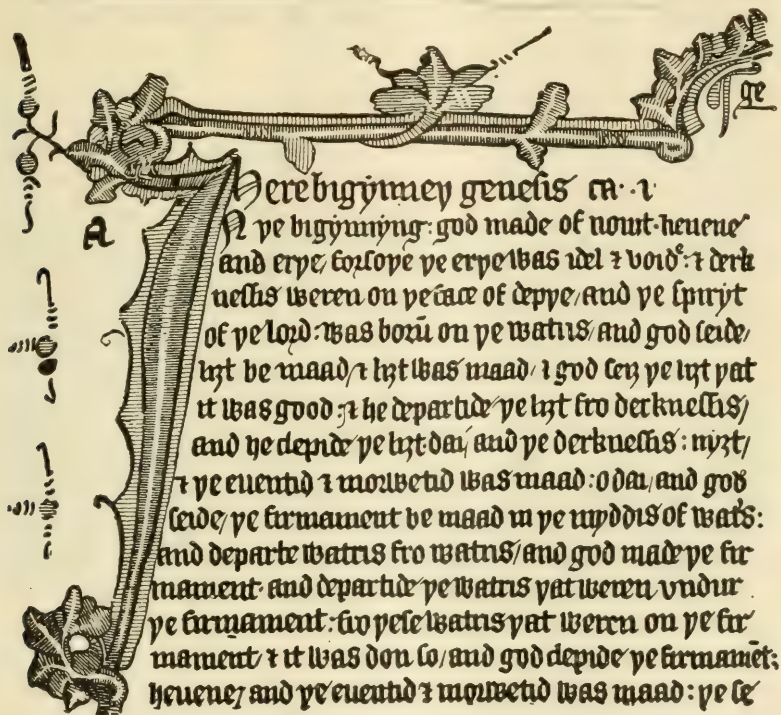 ge
Here bigynney genesis ca · i
A
In ye bigynnyng: god made of nouȝt· heuene
and erye/ forsoye ye erye was idel ⁊ voide: ⁊ derk
nessis weren on ye face of deppe/ and ye spiryt
of ye lord: was borū on ye watris/ and god seide/
liȝt be maad/ ⁊ liȝt was maad/ ⁊ god seȝ ye liȝt yat
it was good: ⁊ he departide ye liȝt fro derknessis/
and he clepide ye liȝt· dai/ and ye derknessis: nyȝt/
⁊ ye euentid ⁊ morwetid was maad: o dai/ and god
seide/ ye firmament be maad in ye myddis of watˢ:
and departe watris fro watris/ and god made ye fir
mament· and departide ye watris yat weren vndur
ye firmament: fro yese watris yat weren on ye fir
mament/ ⁊ it was don so/ and god clepide ye firmamēt:
heuene/ and ye euentid ⁊ morwetid was maad: ye se